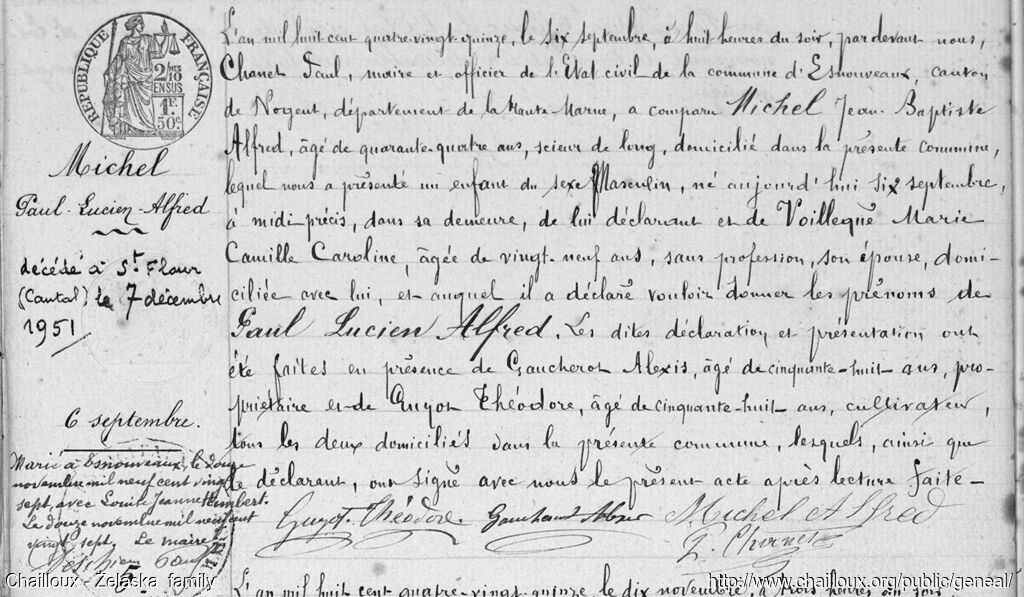 RÉPUBLIQUE FRANÇAISE
2/10
EN SUS
1F.
50c.
Michel
Paul-Lucien-Alfred
décédé à St Flour
(Cantal) le 7 décembre
1951
6 septembre.
Marié à Esnouveaux, le douze
novembre mil neuf cent vingt
sept, avec Louise Jeanne Humbert.
Le douze novembre mil neuf cent
vingt sept. Le maire
L'an mil huit cent quatre-vingt-quinze, le six septembre, à huit heures du soir, par devant nous,
Chanet Paul, maire et officier de l'Etat civil de la commune d'Esnouveaux, canton
de Nogent, département de la Haute Marne, a comparu Michel Jean-Baptiste
Alfred, âgé de quarante-quatre ans, scieur de long, domicilié dans la présente commune,
lequel nous a présenté un enfant du sexe Masculin, né aujourd'hui six septembre,
à midi précis, dans sa demeure, de lui déclarant et de Voillequé Marie
Camille Caroline, âgée de vingt-neuf ans, sans profession, son épouse, domi-
ciliée avec lui, et auquel il a déclaré vouloir donner les prénoms de
Paul Lucien Alfred. Les dites déclaration et présentation ont
été faites en présence de Gaucherot Alexis, âgé de cinquante-huit ans, pro-
priétaire et de Guyot Théodore, âgé de cinquante-huit ans, cultivateur,
tous les deux domiciliés dans la présente commune, lesquels, ainsi que
le déclarant, ont signé avec nous le présent acte après lecture faite-
Guyot Théodore. Michel Alfred
P. Chanet
L'an mil huit cent quatre-vingt-quinze, le dix novembre, à trois heures du soir
Chailloux - Żelaska family
http://www.chailloux.org/public/geneal/